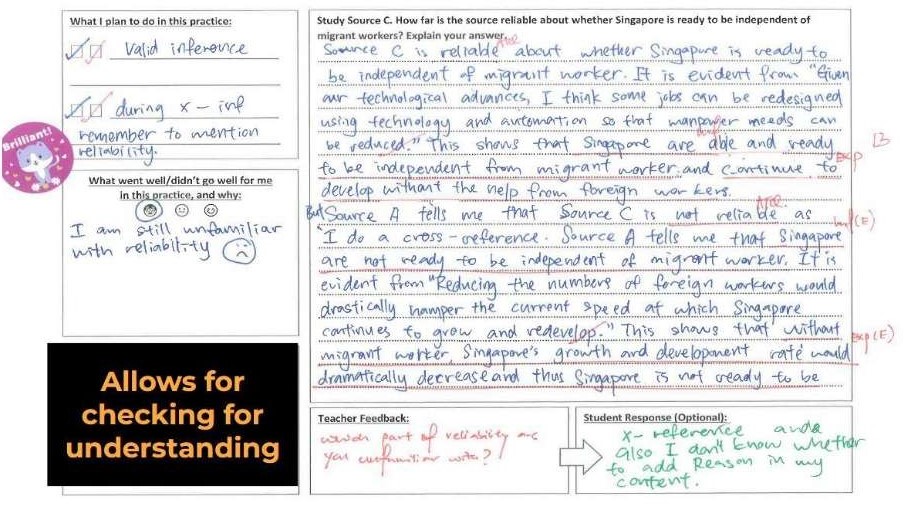 What I plan to do in this practice:
Valid inference
during x - inf
remember to mention
reliability.
Brilliant!
What went well/didn't go well for me
in this practice, and why:
I am still unfamiliar
with reliability
Allows for
checking for
understanding
Study Source C. How far is the source reliable about whether Singapore is ready to be independent of
migrant workers? Explain your answer.
Source C is reliable about whether Singapore is ready to
be independent of migrant worker. It is evident from "Given
our technological advances, I think some jobs can be redesigned
using technology and automation so that manpower needs can
be reduced." This shows that Singapore are able and ready
to be independent from migrant worker and continue to
develop without the help from foreign workers.
But Source A tells me that Source C is not reliable as
I do a cross-reference. Source A tells me that Singapore
are not ready to be independent of migrant worker. It is
evident from "Reducing the numbers of foreign workers would
drastically hamper the current speed at which Singapore
continues to grow and redevelop." This shows that without
migrant worker, Singapore's growth and development rate would
dramatically decrease and thus Singapore is not ready to be
Exp
Exp(E)
Teacher Feedback:
which part of reliability are
you unfamiliar with?
Student Response (Optional):
x-reference and
also I don't know whether
to add Reason in my
content.